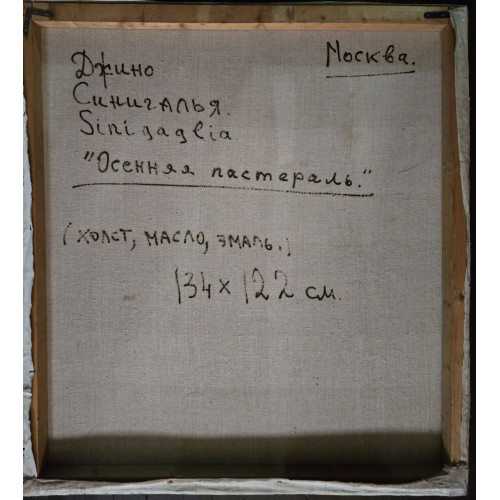 Москва.
Джино
Синигалья.
Sinigaglia
"Осенняя пастераль."
(холст, масло, эмаль.)
134 x 122 см.